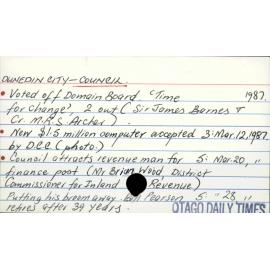 DUNEDIN CITY - COUNCIL.
• Voted off Domain Board 'Time 1987.
for change', 2 out (Sir James Barnes &
Cr. M.R.S. Archer).
• New $1.5 million computer accepted 3: Mar.12,1987.
by D.C.C. (photo.)
• Council attracts revenue man for 5: Mar.20, "
finance post (Mr Brian Wood, District
Commissioner for Inland Revenue)
Putting his broom away - Pearson 5: " 28, "
retires after 34 years.
OTAGO DAILY TIMES